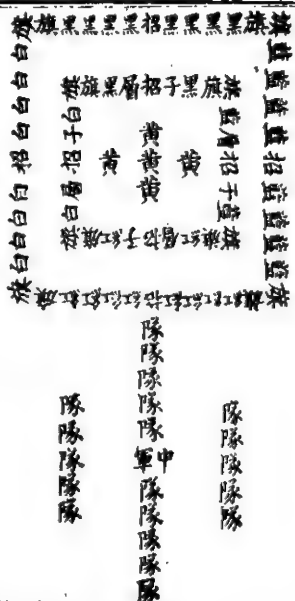 旗旗黑黑黑黑招黑黑黑黑旗旗
藍藍藍藍招藍藍藍藍旗
旗紅紅紅紅招紅紅紅紅旗
旗白白白白招白白白白
旗黑層招子黑旗旗
藍層招子藍旗
旗紅層招子紅旗
旗白層招子白旗
黃
黃黃黃
黃
隊隊隊隊隊
隊隊隊隊隊
中軍
隊隊隊隊
隊隊隊隊隊